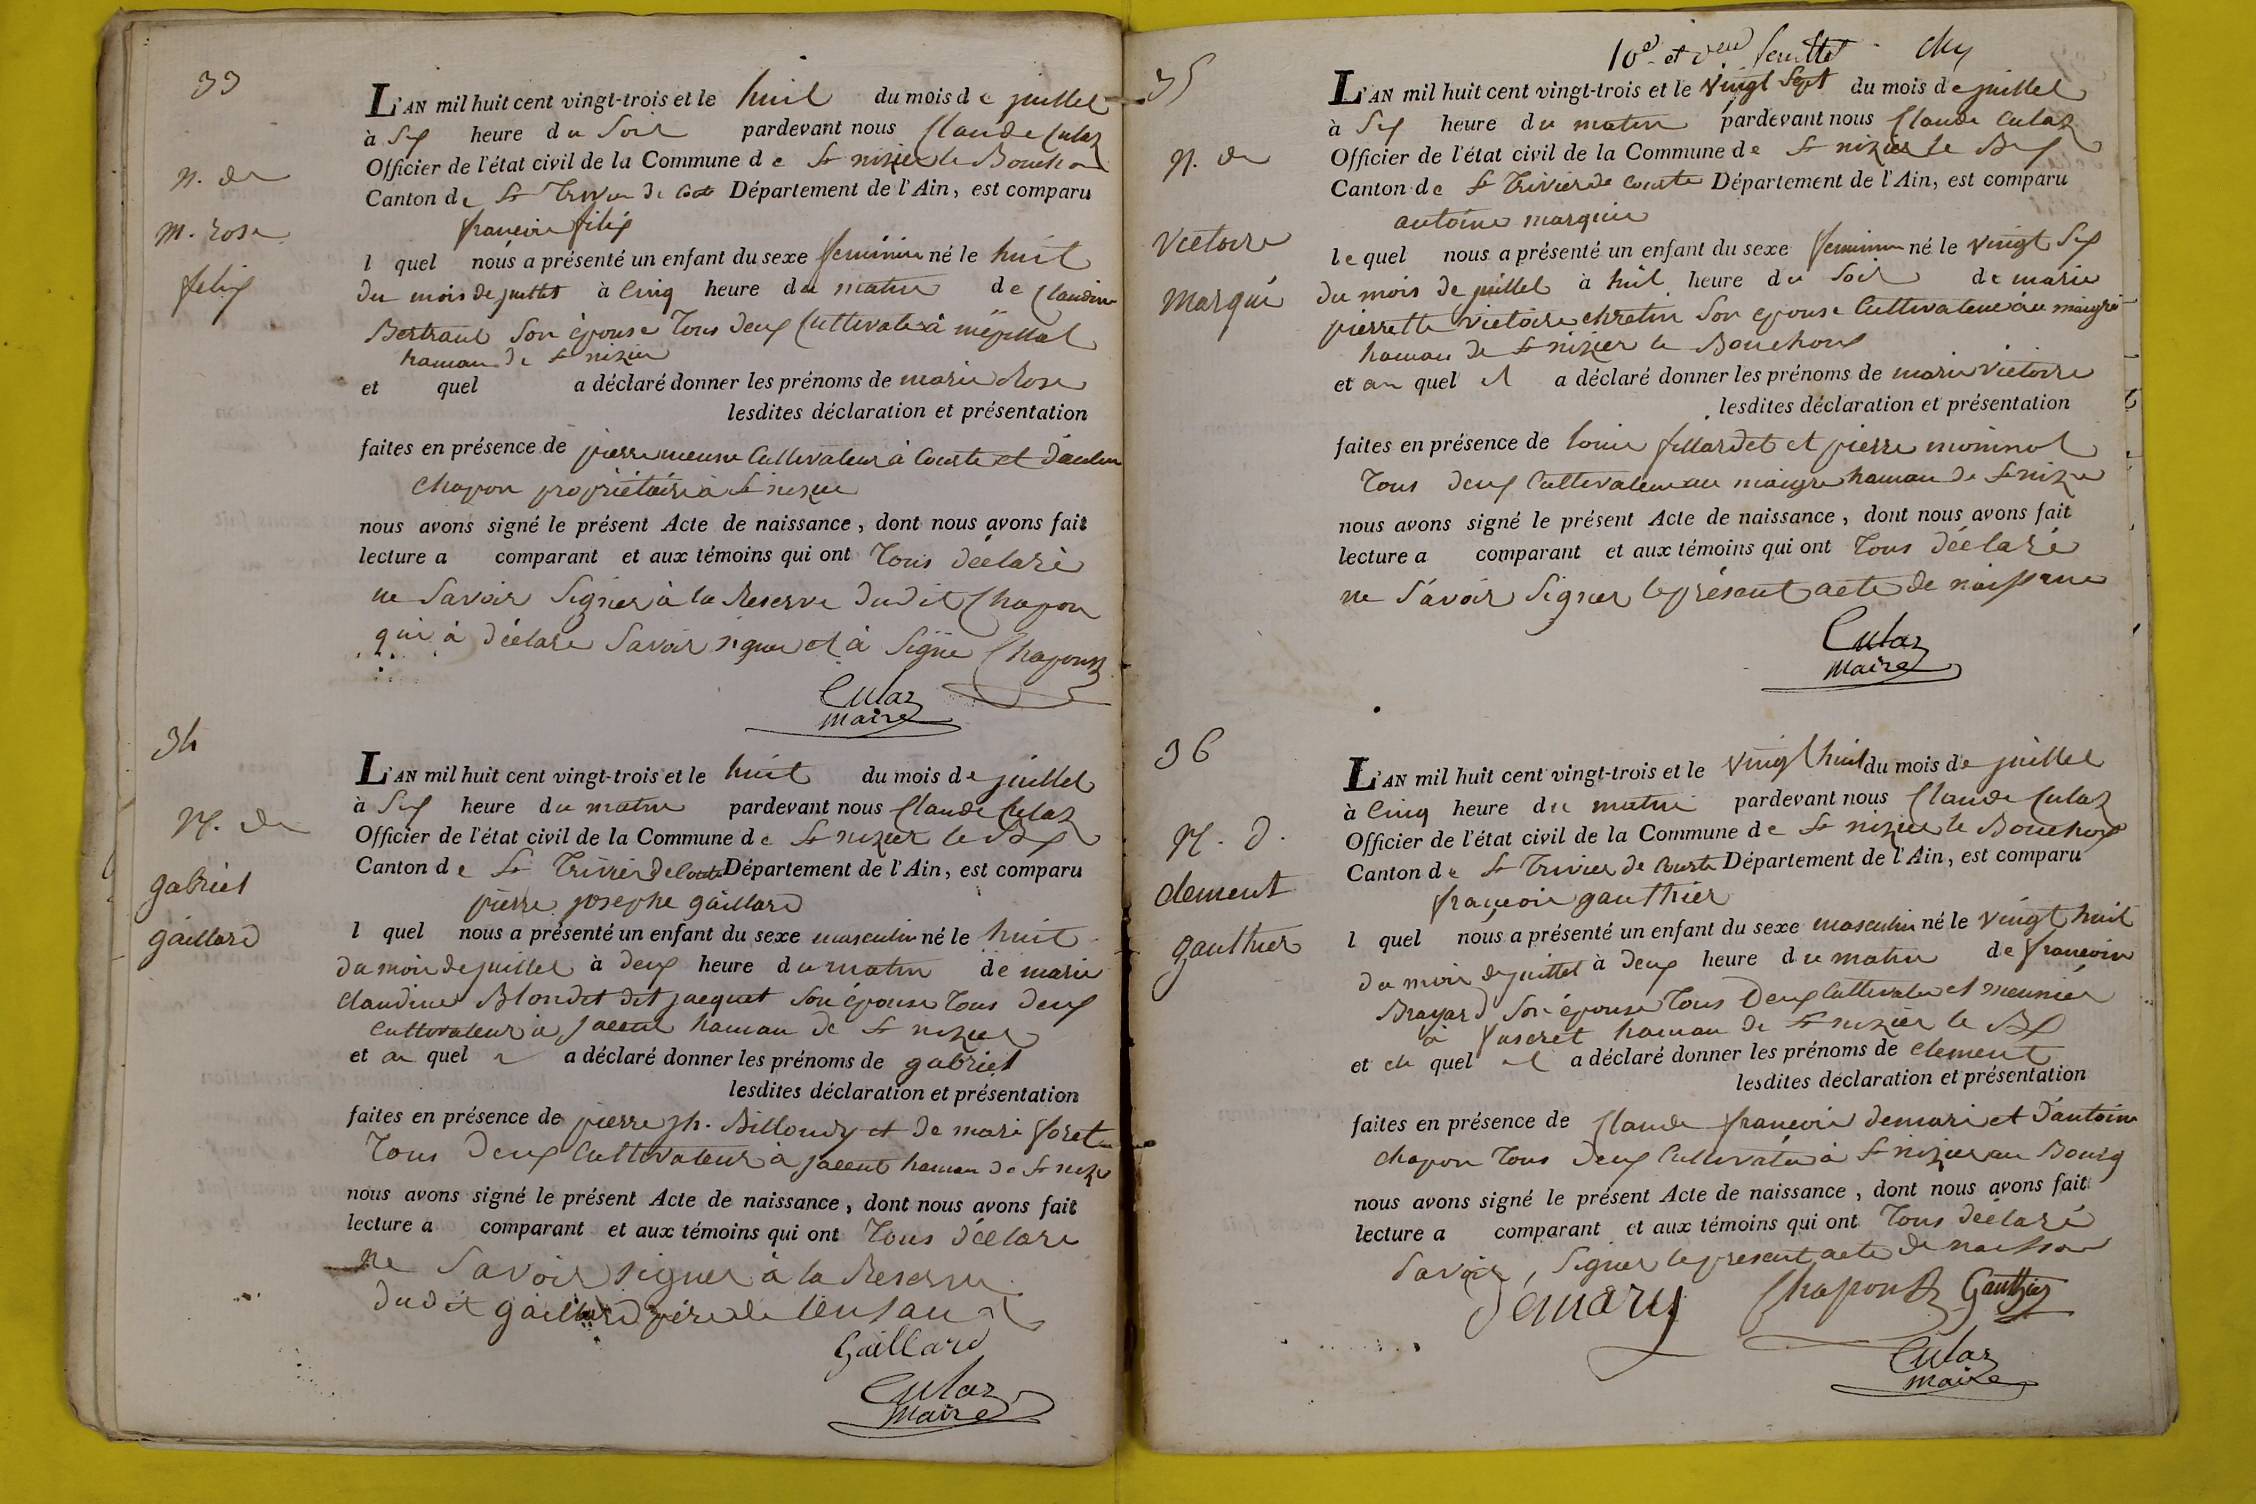 33
n. de
m. rose
felix
L'AN mil huit cent vingt-trois et le huit du mois de juillet
à six heure du Soir pardevant nous Claude Culaz
Officier de l'état civil de la Commune de St nizier le Bouchou
Canton de St Trivier de Courte Département de l'Ain, est comparu
francoin félix
l quel nous a présenté un enfant du sexe feminin né le huit
du mois de juillet à Cinq heure du matin de Claudine
Bertrand Son épouse Tous deux Cultivateur à
hamau de St nizier
et quel a déclaré donner les prénoms de marie Rose
lesdites déclaration et présentation
faites en présence de pierre Cultivateur à Courte et d'antoine
Chapon propriétaire à St nizier
nous avons signé le présent Acte de naissance, dont nous avons fait
lecture a comparant et aux témoins qui ont Tous déclaré
ne Savoir Signer à la Reserve dudit Chapon
qui à déclare Savoir signer et à Signe Chapon
Culaz
maire
34
N. de
gabriel
gaillard
L'AN mil huit cent vingt-trois et le huit du mois de juillet
à six heure du matin pardevant nous Claude Culaz
Officier de l'état civil de la Commune de St nizier le Bx
Canton de St Trivier de Courte Département de l'Ain, est comparu
pierre josephe gaillard
l quel nous a présenté un enfant du sexe masculin né le huit
du mois de juillet à deux heure du matin de marie
claudine Blondet dit jacquet Son épouse Tous deux
Cultivateur à jacent hamau de St nizier
et au quel a déclaré donner les prénoms de gabriel
lesdites déclaration et présentation
faites en présence de pierre jh. Billoudy et de mari foret
Tous deux Cultivateur à jacent hamau de St nizier
nous avons signé le présent Acte de naissance, dont nous avons fait
lecture a comparant et aux témoins qui ont Tous déclaré
ne Savoir signer à la Reserve
dudit gaillard père de l'enfant
Gaillard
Culaz
maire
10e et feuillet
35
N. de
Victoire
marqui
L'AN mil huit cent vingt-trois et le vingt Sept du mois de juillet
à six heure du matin pardevant nous Claude Culaz
Officier de l'état civil de la Commune de St nizier le Bx
Canton de St Trivier de Courte Département de l'Ain, est comparu
antoine marquin
lequel nous a présenté un enfant du sexe feminin né le vingt Six
du mois de juillet à huit heure du Soir de marie
pierrette victoire chretin Son epouse Cultivateur au maigre
hamau de St nizier le Bouchoux
et au quel il a déclaré donner les prénoms de marie victoire
lesdites déclaration et présentation
faites en présence de louis fillardet et pierre moninot
Tous deux Cultivateur au maigre hamau de St nizier
nous avons signé le présent Acte de naissance, dont nous avons fait
lecture a comparant et aux témoins qui ont Tous déclaré
ne Savoir Signer le présent acte de naissance
Culaz
Maire
36
N. D.
clement
gauthier
L'AN mil huit cent vingt-trois et le vingt huit du mois de juillet
à Cinq heure du matin pardevant nous Claude Culaz
Officier de l'état civil de la Commune de St nizier le Bouchoux
Canton de St Trivier de Courte Département de l'Ain, est comparu
françois gauthier
l quel nous a présenté un enfant du sexe masculin né le vingt huit
du mois de juillet à deux heure du matin de francoise
Brayard Son épouse Tous Deux Cultivateur et meunier
à hamau de St nizier le Bx
et au quel il a déclaré donner les prénoms de clement
lesdites déclaration et présentation
faites en présence de Claude francois demari et d'antoine
chapon Tous deux Cultivateur à St nizier au Bourg
nous avons signé le présent Acte de naissance, dont nous avons fait
lecture a comparant et aux témoins qui ont Tous déclaré
Savoir, Signer le present acte de naissance
Demary Chapon Gauthier
Culaz
Maire